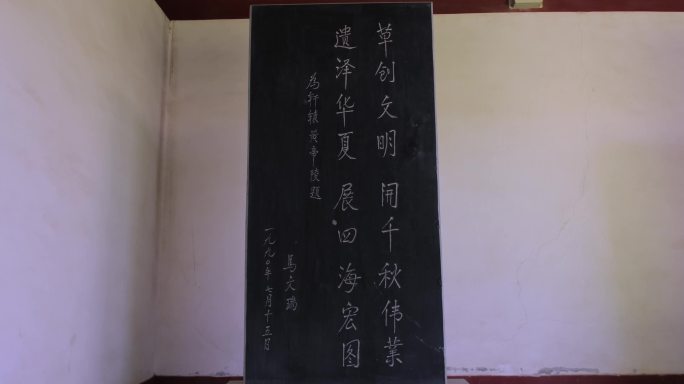 草创文明 開千秋伟業
遗泽华夏 展四海宏图
为轩辕黄帝陵题
馬文瑞
一九九〇年七月十五日